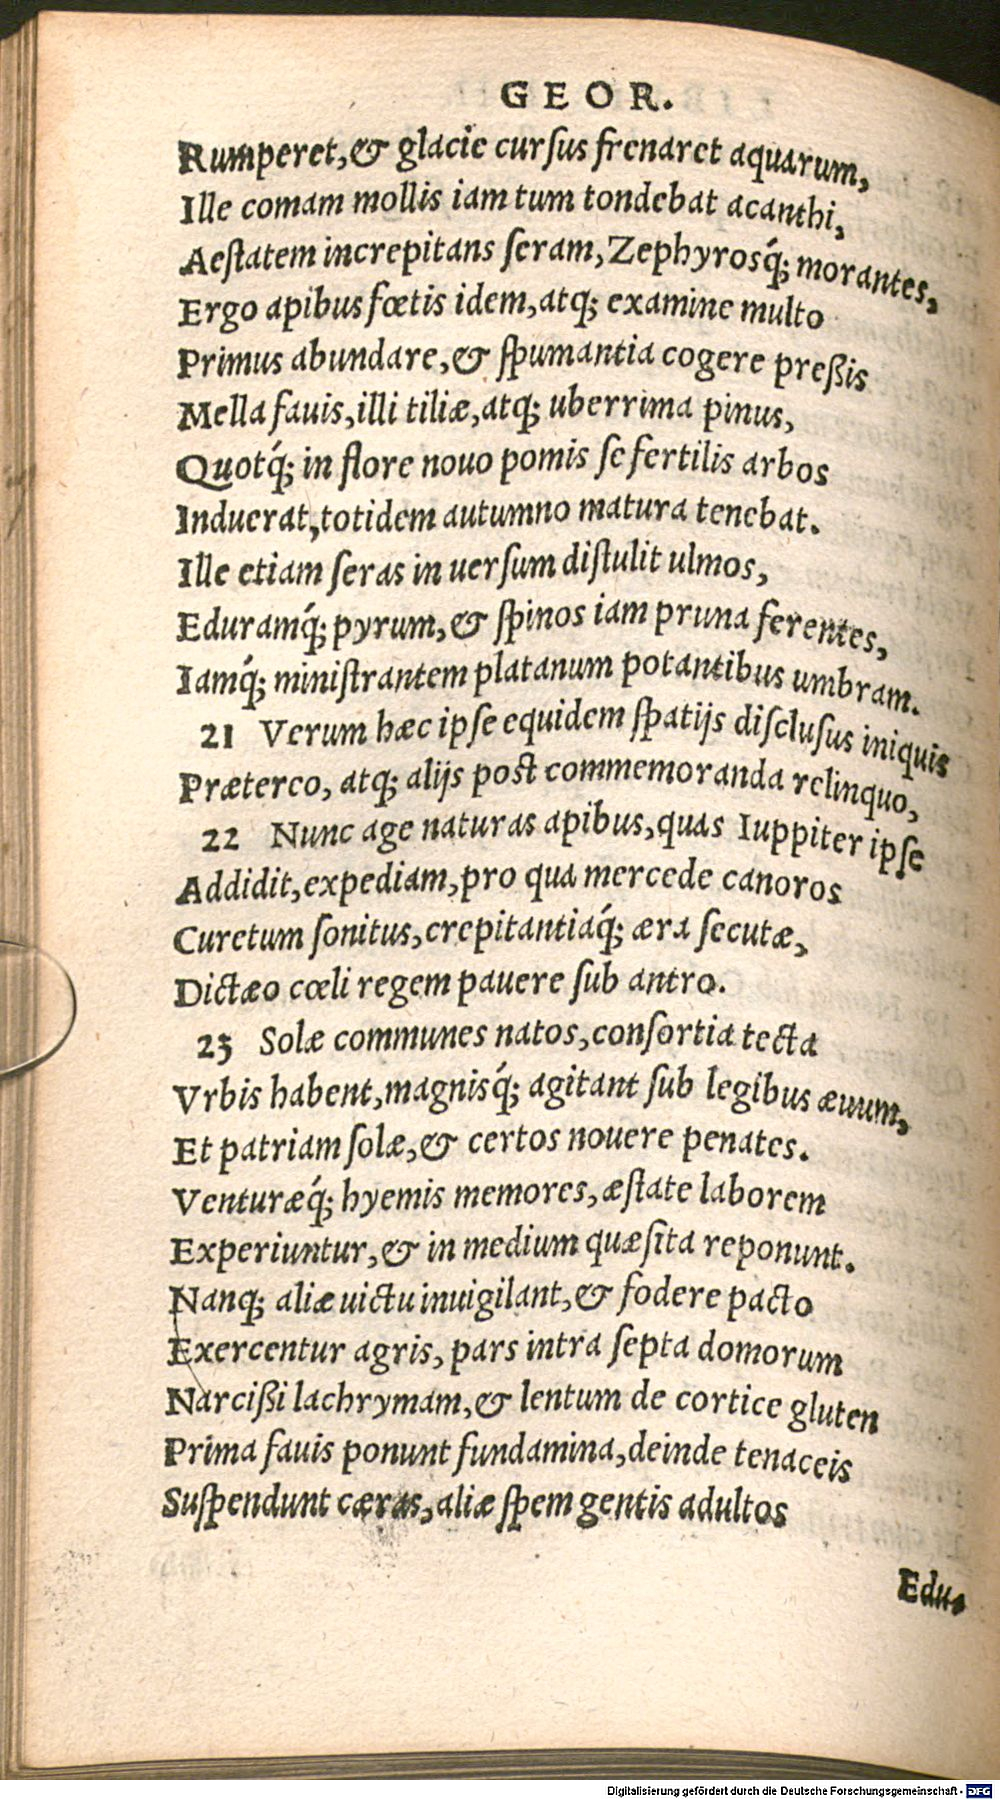 GEOR.
Rumperet,& glacie curſus frenaret aquarum,
Ille comam mollis iam tum tondebat acanthi,
Aeſtatem increpitans ſeram, Zephyrosq́; morantes,
Ergo apibus fœtis idem, atq; examine multo
Primus abundare,& ſpumantia cogere preßis
Mella fauis, illi tiliæ, atq; uberrima pinus,
Quotq́; in flore nouo pomis ſe fertilis arbos
Induerat, totidem autumno matura tenebat.
Ille etiam ſeras in uerſum diſtulit ulmos,
Eduramq́; pyrum,& ſpinos iam pruna ferentes,
Iamq́; miniſtrantem platanum potantibus umbram.
21 Verum hæc ipſe equidem ſpatijs diſcluſus iniquis
Prætereo, atq; alijs poſt commemoranda relinquo,
22 Nunc age naturas apibus, quas Iuppiter ipſe
Addidit, expediam, pro qua mercede canoros
Curetum ſonitus, crepitantiaq́; æra ſecutæ,
Dictæo cœli regem pauere ſub antro.
23 Solæ communes natos, conſortia tecta
Vrbis habent, magnisq́; agitant ſub legibus æuum,
Et patriam ſolæ,& certos nouere penates.
Venturæq́; hyemis memores, æſtate laborem
Experiuntur,& in medium quæſita reponunt.
Nanq; aliæ uictu inuigilant,& fodere pacto
Exercentur agris, pars intra ſepta domorum
Narcißi lachrymam,& lentum de cortice gluten
Prima fauis ponunt fundamina, deinde tenaceis
Suſpendunt cæras, aliæ ſpem gentis adultos
Edu-
Digitalisierung gefördert durch die Deutsche Forschungsgemeinschaft - DFG